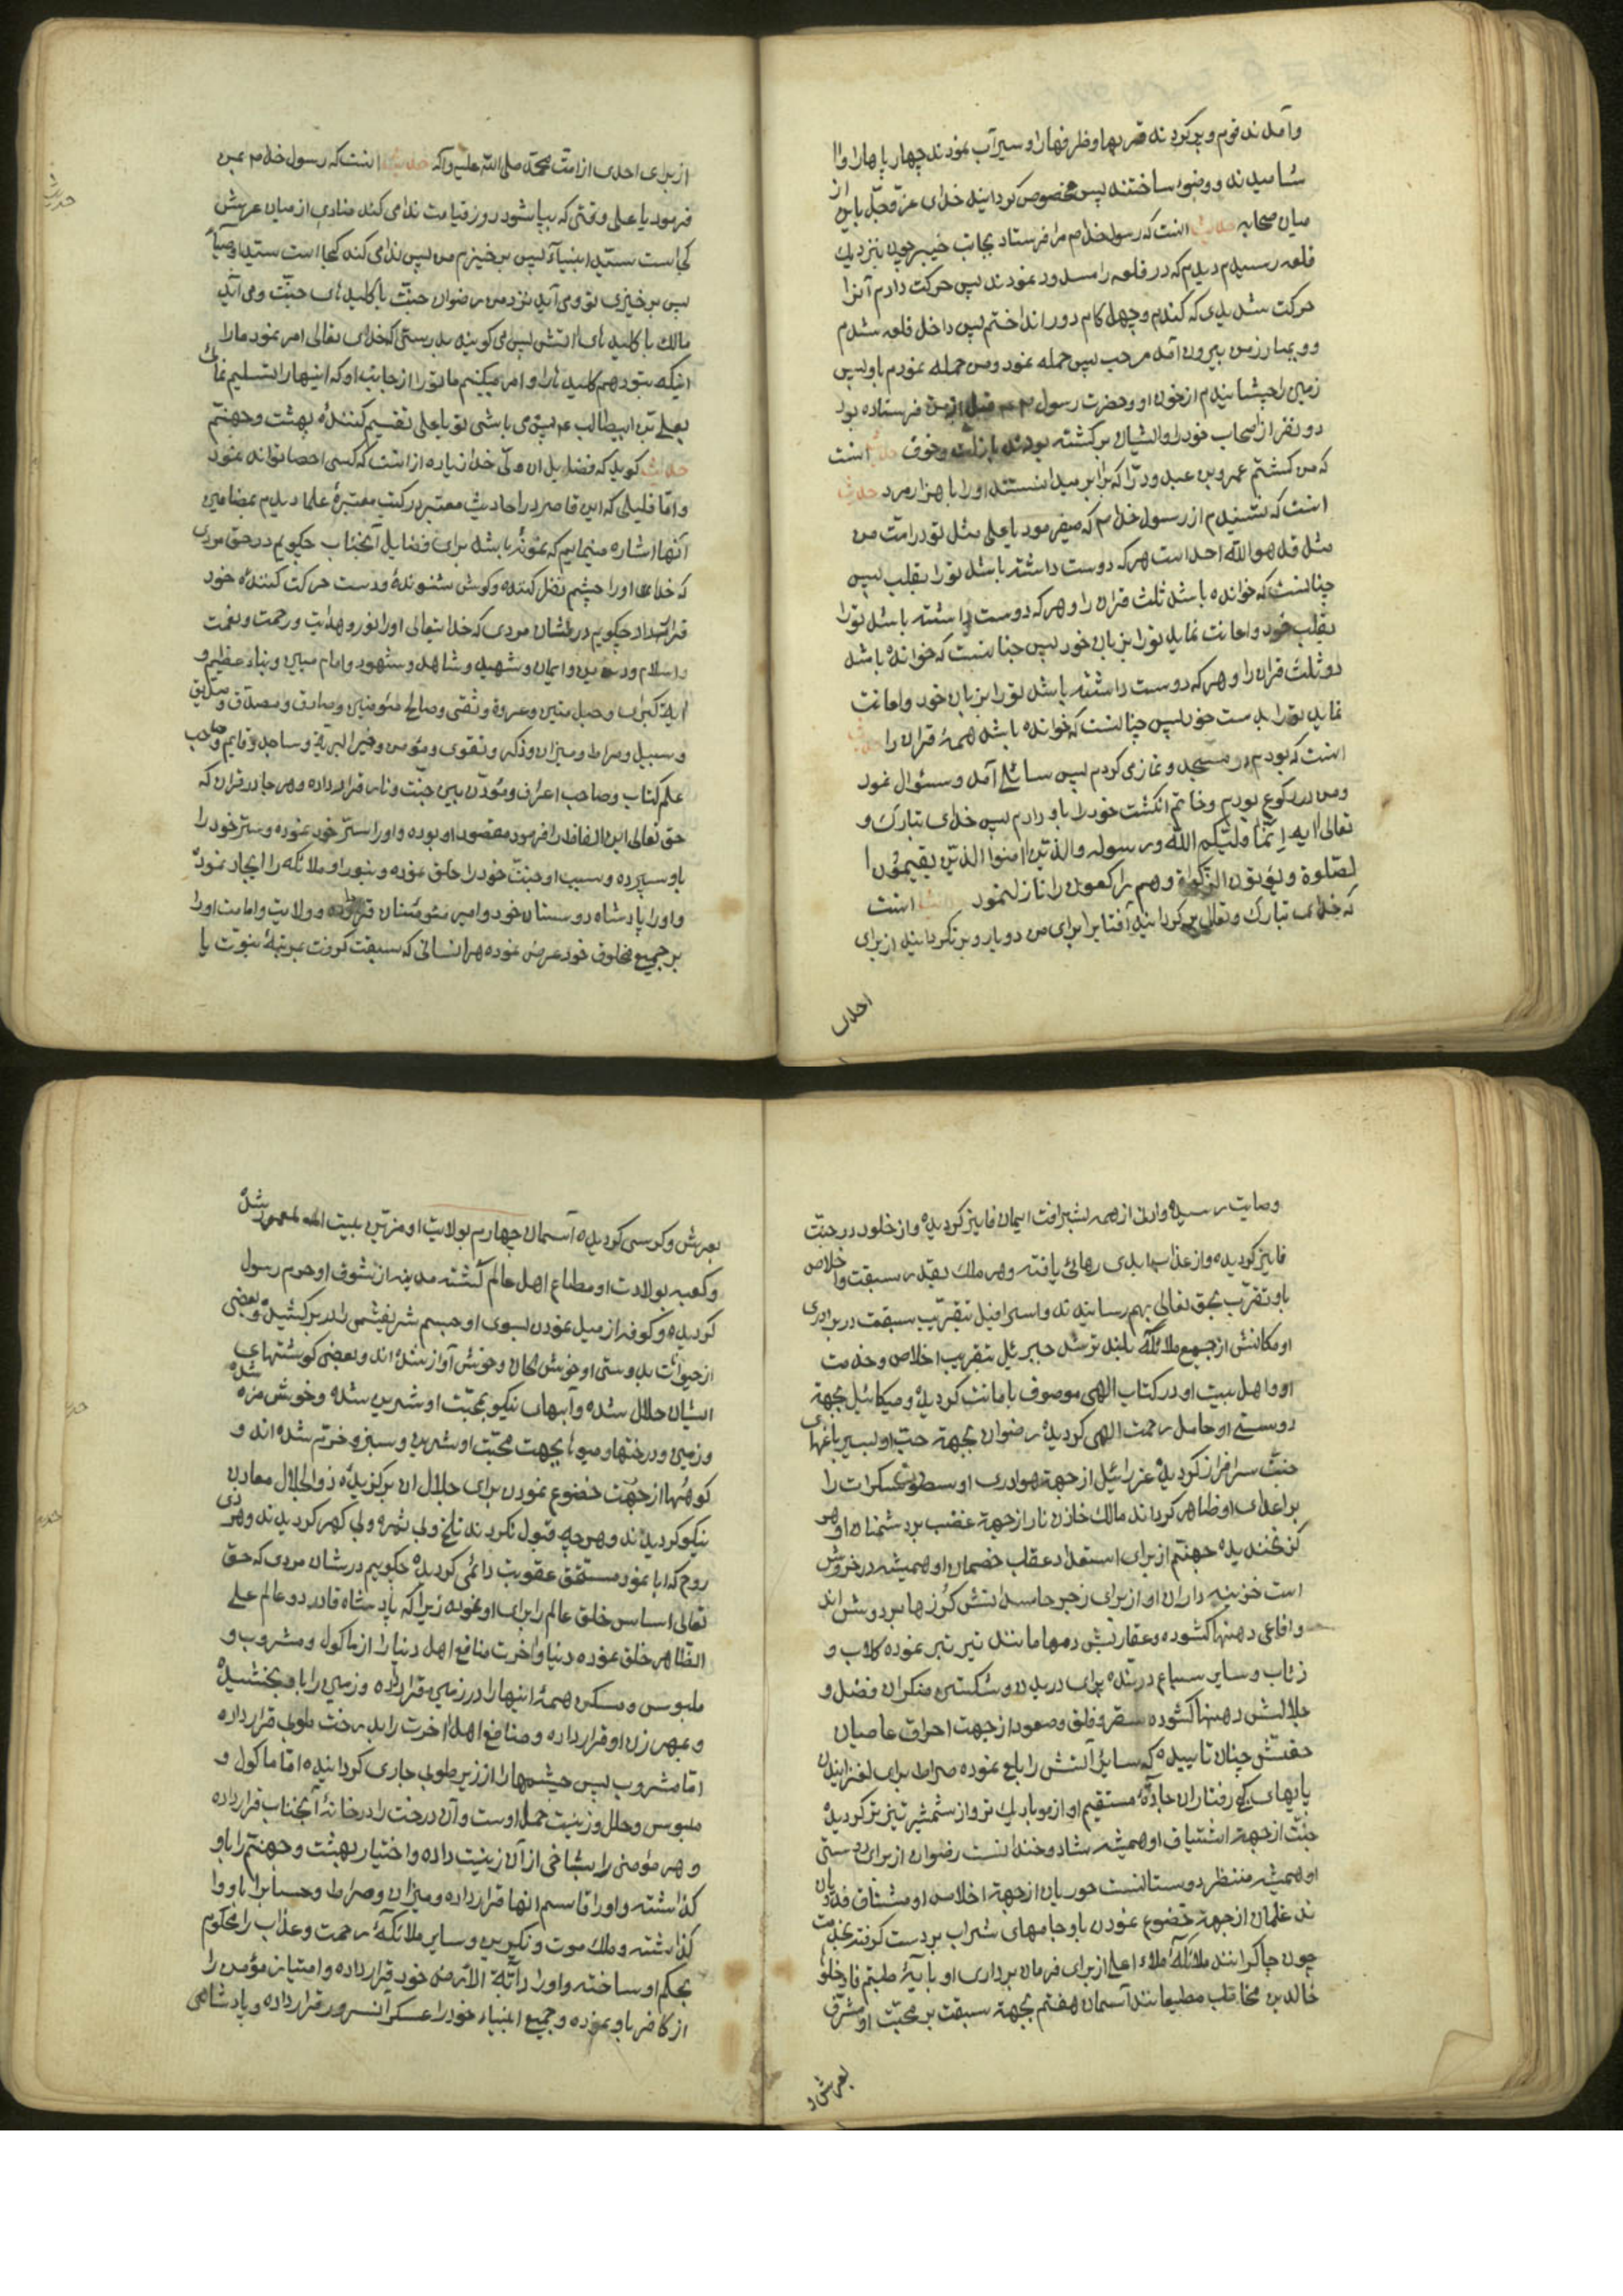 وآمدند قوم و پر کردند قربها و ظرفها را و سیرآب نمودند چهارپاها را و آ
شامیدند و وضوء ساختند پس مخصوص کردانید خدای عزوجل باین از
میان صحابه حدیث انست که رسول خدا ص مرا فرستاد بجانب خیبر چون بنزدیک
قلعه رسیدم دیدم که در قلعه را مسدود نمودند پس حرکت دادم آنرا
حرکت شدیدی که کندم و چهل کام دور انداختم پس داخل قلعه شدم
و بمبارز من بیرون آمد مرحب پس حمله نمود و من حمله نمودم باو پس
زمین را چشانیدم از خون او و حضرت رسول ص قبل از من فرستاده بود
دو نفر از اصحاب خود را و ایشان برکشته بودند با زلت و خوف حدیث انست
که من کشتم عمرو بن عبد ود را که برابر میدانستند او را با هزار مرد حدیث
انست که شنیدم از رسول خدا ص که میفرمود یا علی مثل تو در امت من
مثل قل هو الله احد است هر که دوست داشته باشد تو را بقلب پس
چنانست که خوانده باشد ثلث قران را و هر که دوست داشته باشد تو را
بقلب خود و اعانت نماید تو را بزبان خود پس چنانست که خوانده باشد
دو ثلث قران را و هر که دوست داشته باشد تو را بزبان خود و اعانت
نماید تو را بدست خود پس چنانست که خوانده باشد همهٔ قران را حدیث
انست که بودم در مسجد و نماز می کردم پس سائلی آمد و سئوال نمود
و من در رکوع بودم و خاتم انکشت خود را باو دادم پس خدای تبارک و
تعالی ایه اِنّما ولیّکم الله ورسوله والذین امنوا الذین یقیمون ا
لصّلوة ویؤتون الزکوة وهم راکعون را نازل نمود حدیث انست
که خدای تبارک و تعالی بر کردانید آفتاب را برای من دو بار و بر نکردانید از برای
احدی
از برای احدی از امت محمّد صلی الله علیه واله حدیث انست که رسول خدا ص بمن
فرمود یا علی وقتی که بپا شود روز قیامت ندا می کند منادی از میان عرش
کجاست سیّد انبیآء پس بر خیزم من پس ندا می کند کجا است سیّد اوصیآء
پس بر خیزی تو و می آید نزد من رضوان جنّت با کلیدهای جنّت و می آید
مالک با کلیدهای آتش پس می کویند بدرستی که خدای تعالی امر نمود ما را
اینکه بتو دهم کلیدها را و امر میکنیم ما تو را از جانب او که اینها را تسلیم نمائی
بعلی بن ابیطالب ع پس می باشی تو یا علی تقسیم کنندهٔ بهشت و جهنّم
کوید که فضایل ان ولیّ خدا زیاده از انست که کسی احصا تواند نمود
و امّا قلیلی که این قاصر در احادیث معتبره در کتب معتبرهٔ علما دیدم بمضامین
آنها اشاره مینمایم که نمونه باشد برای فضایل آنجناب چکویم در حق مردی
که خدای او را چشم نظر کننده و کوش شنونده و دست حرکت کنندهٔ خود
قرار داد چکویم در شان مردی که خدا تعالی او را نور و هدایت و رحمت و نعمت
و اسلام و دین و ایمان و شهید و شاهد و مشهود و امام مبین و بناء عظیم و
ایهٔ کبری و حبل متین و عروة وثقی و صالح مئومنین و صادق و مصدّق و صدّیق
و سبیل و صراط و میزان و ذکر و تقوی و مؤمن و خیر البریّة و ساجد و قایم و صاحب
علم کتاب و صاحب اعراف و مؤذّن بین جنت و نار قرار داده و هر جا در قران که
حق تعالی این الفاظ را فرمود مقصود او بوده و او را ستر خود نموده و ستر خود را
باو سپرده و سبب او جنّت خود را خلق نموده و بنور او ملائکه را ایجاد نموده
و او را پادشاه دوستان خود و امیر مئومنان قرار داده و ولایت و امامت او را
بر جمیع مخلوق خود عرض نموده هر انسانی که سبقت کرفت بمرتبهٔ نبوّت یا
وصایت رسیده و ادنی از همه بشرافت ایمان فایز کردیده و از خلود در جنّت
فایز کردیده و از عذاب ابدی رهائی یافته و هر ملک بقدر سبقت و اخلاص
باو تقرّب بحق تعالی بهم رسانیدند و اسرافیل بتقریب سبقت در برادری
او مکانش از جمیع ملائکه بلندتر شد جبرئیل بتقریب اخلاص و خدمت
او و اهل بیت او در کتاب الهی موصوف بامانت کردیده و میکائیل بجهة
دوستی او حامل رحمت الهی کردیده رضوان بجهة حبّ او بسیر باغهای
جنّت سرافراز کردیده عزرائیل از جهة هواداری او سطوت سکرات را
بر اعدای او ظاهر کرداند مالک خازن نار از جهة غضب بر دشمنان او هر
کز نخندیده جهنّم از برای استعداد عقاب خصمان او همیشه در خروش
است خزینه داران او از برای زجر حاسدانش کرزها بر دوش اند
و افاعی دهنها کشوده و عقاربش دمها مانند تیر تیز نموده کلاب و
زئاب و سایر سباع درنده برای دریدن و شکستن منکران فضل و
جلالش دهنها کشوده سقر و فلق و صعود از جهت احراق عاصیان
حقّش چنان تابیده که سایر آتش را بلع نموده صراط برای لغزانیدن
پایهای کج رفتاران جادهٔ مستقیم او از مو باریک تر و از شمشیر تیز تر کردیده
جنّت از جهة اشتیاق او همیشه شاد و خندانست رضوان از برای دوستی
او همیشه منتظر دوستانست حوریان از جهة اخلاص او مشتاق فدویان
ند غلمان از جهة خضوع نمودن باو جامهای شراب بر دست کرفته بخدمت
چون چاکرانند ملائکهٔ ملاء اعلی از برای فرمان برداری او بایهٔ طبتم فادخلوها
خالدین مخاطب مطیعانند آسمان هفتم بجهة سبقت بر محبّت او مشرّف
بعرش و
بعرش و کرسی کردیده آسمان چهارم بولایت او مزیّن ببیت المعمور شده
و کعبه بولادت او مطاع اهل عالم کشته مدینه از تشوف او حرم رسول
کردیده و کوفه از میل نمودن بسوی او جسم شریفش را در بر کشیده و بعضی
از حیوانات بدوستی او خوش الحان و خوش آواز شده اند و بعضی کوشتهای
ایشان حلال شده و آبهای نیکو بمحبّت او شیرین شده و خوش مزه شده
و زمین و درختها و میوها بجهت محبّت او شیرین و سبز و خرّم شده اند و
کوهها از جهت خضوع نمودن برای جلال ان برکزیدهٔ ذوالجلال معادن
نیکو کردیدند و هر چه قبول نکردند تلخ و بی ثمره و بی کهر کردیدند و هر ذی
روح که ابا نمود مستحق عقوبت دائمی کردیده چکویم در شان مردی که حق
تعالی اساس خلق عالم را برای او نموده زیرا که پادشاه قادر دو عالم علی
الظاهر خلق نموده دنیا و آخرت منافع اهل دنیا را از ماکول و مشروب و
ملبوس و مسکن همهٔ اینها را در زمین قرار داده و زمین را باو بخشیده
و بمهر زن او قرار داده و منافع اهل اخرت را بدرخت طوبی قرار داده
امّا مشروب پس چشمها را از زیر طوبی جاری کردانیده امّا ماکول و
ملبوس و حلل و زینت حمل اوست و آن درخت را در خانهٔ آنجناب قرار داده
و هر مؤمنی را بشاخی از آن زینت داده و اختیار بهشت و جهنّم را باو
کذاشته و او را قاسم انها قرار داده و میزان و صراط و حساب را باو وا
کذاشته و ملک موت و نکیرین و سایر ملائکهٔ رحمت و عذاب را محکوم
بحکم او ساخته و او را دابّة الارض خود قرار داده و امتیاز مؤمن را
از کافر باو نموده و جمیع انبیاء خود را عسکر آنسرور قرار داده و پادشاهی